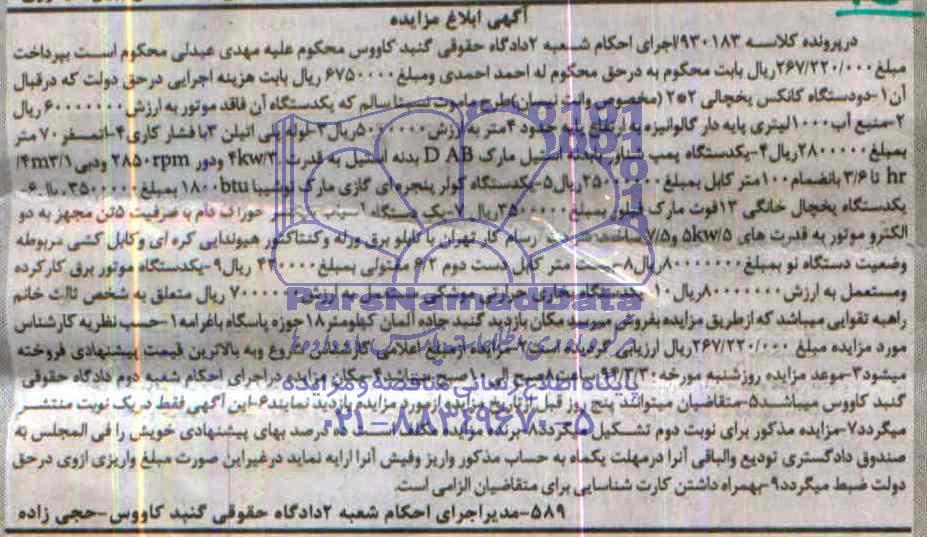 آگهی ابلاغ مزایده
درپرونده کلاسه ۹۳۰۱۸۳/اجرای احکام شعبه ۲دادگاه حقوقی گنبد کاووس محکوم علیه مهدی عبدلی محکوم است بپرداخت
مبلغ ۲۶۷/۲۲۰/۰۰۰ریال بابت محکوم به درحق محکوم له احمد احمدی ومبلغ ۶۷۵۰۰۰۰ ریال بابت هزینه اجرایی درحق دولت که درقبال
آن۱-دودستگاه کانکس یخچالی ۲*۲ (مخصوص وانت نیسان)طرح ماموت نسبتاسالم که یکدستگاه آن فاقد موتور به ارزش ۶۰۰۰۰۰۰۰ریال
۲-منبع آب ۱۰۰۰لیتری پایه دار گالوانیزه به ارتفاع پایه حدود ۴متر به ارزش ریال۳-لوله پلی اتیلن ۳با فشار کاری ۴-اتمسفر ۷۰ متر
بمبلغ ۲۸۰۰۰۰۰ریال۴-یکدستگاه پمپ شناور بابدنه استیل مارک D AB بدنه استیل به قدرت ودور ۲۸۵۰rpm ودبی
hr تا ۳/۶ بانضمام ۱۰۰متر کابل بمبلغ ریال۵-یکدستگاه کولر پنجره ای گازی مارک توشیبا ۱۸۰۰btu بمبلغ ۳۵۰۰۰۰۰ ریال۶-
یکدستگاه یخچال خانگی ۱۳فوت مارک بمبلغ ریال۷-یک دستگاه آسیاب خوراک دام با ظرفیت ۵تن مجهز به دو
الکترو موتور به قدرت های ۵kw/۵ و۷/۵ کار تهران با تابلو برق ورله وکنتاکتور هیوندایی کره ای وکابل کشی مربوطه
وضعیت دستگاه نو بمبلغ ۸۰۰۰۰۰۰۰ریال۸- متر کابل دست دوم بمبلغ ریال۹-یکدستگاه موتور برق کارکرده
ومستعمل به ارزش ریال۱۰- یکدستگاه بخاری مستعمل به ارزش ریال متعلق به شخص ثالث خانم
راهبه تقوایی میباشد که ازطریق مزایده بفروش میرسد مکان بازدید گنبد جاده آلمان کیلومتر۱۸حوزه پاسگاه باغرامه۱-حسب نظریه کارشناس
مورد مزایده مبلغ ۲۶۷/۲۲۰/۰۰۰ریال ارزیابی گردیده است۲-مزایده ازمبلغ اعلامی کارشناس شروع وبه بالاترین قیمت پیشنهادی فروخته
میشود۳-موعد مزایده روزشنبه مورخه ۹۴/۳/۳۰ ساعت ۸صبح الی ۱۰صبح میباشد۴-مکان مزایده دراجرای احکام شعبه دوم دادگاه حقوقی
گنبد کاووس میباشد۵-متقاضیان میتوانند پنج روز قبل ازتاریخ مزایده ازمورد مزایده بازدید نمایند۶-این آگهی فقط دریک نوبت منتشر
میگردد۷-مزایده مذکور برای نوبت دوم تشکیل میگردد۸-برنده مزایده مکلف است ده درصد بهای پیشنهادی خویش را فی المجلس به
صندوق دادگستری تودیع والباقی آنرا درمهلت یکماه به حساب مذکور واریز وفیش آنرا ارایه نماید درغیراین صورت مبلغ واریزی ازوی درحق
دولت ضبط میگردد۹-بهمراه داشتن کارت شناسایی برای متقاضیان الزامی است.
۵۸۹-مدیراجرای احکام شعبه ۲دادگاه حقوقی گنبد کاووس-حجی زاده
ParsNamadData
پایگاه اطلاع رسانی مناقصه و مزایده
۰۲۱-۸۸۳۴۹۶۷۰-۵